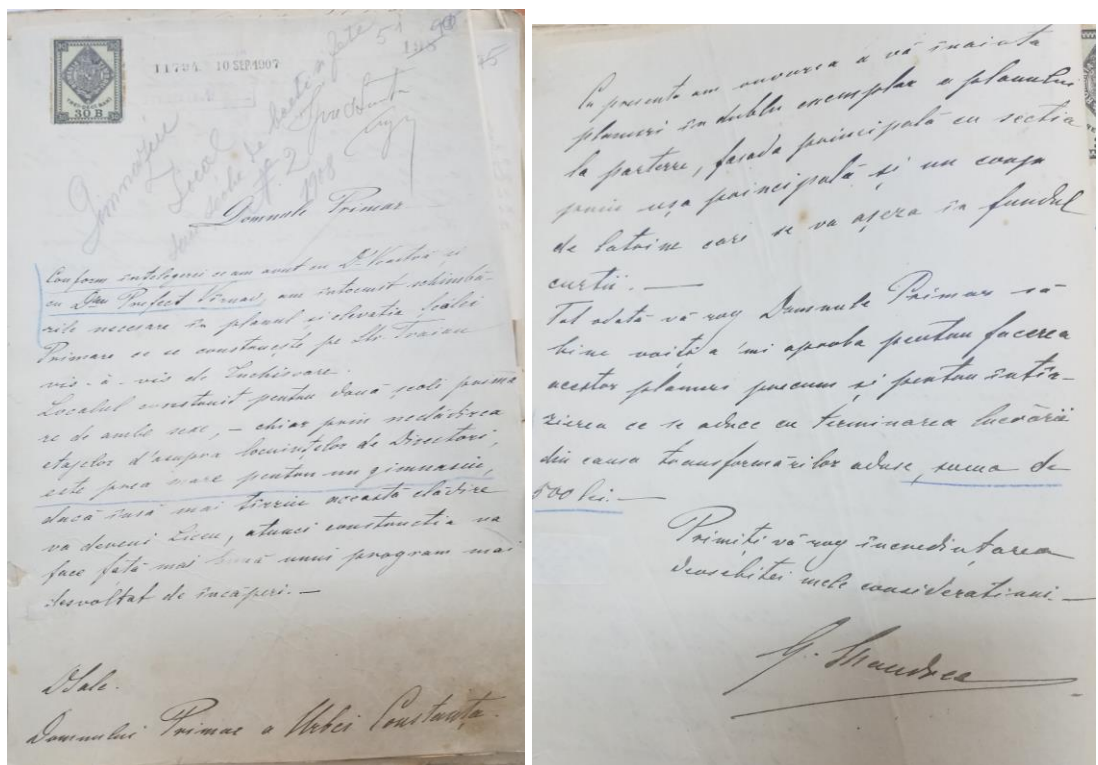 30 B
11794 10 SEP. 1907
51
Gimnaziu
Local
No. 2
1908
Domnule Primar
Conform înțelegerei ce am avut cu Dl
cu Dnu Prefect Vîrnav, am întocmit schimbă-
rile necesare în planul și elevația școalei
Primare ce se construește pe Str. Traian
vis-à-vis de Închisoare.
Localul construit pentru două școli prima
re de ambe sexe, – chiar prin neclădirea
etajelor d'asupra locuințelor de Directori,
este prea mare pentru un gimnasiu,
dacă însă mai târziu această clădire
va deveni Liceu, atunci construcția va
face față mai bună unui program mai
desvoltat de încăperi. —
DSale.
Domnului Primar a Urbei Constanța.
Cu prezenta am onoarea a vă înainta
planuri în dublu exemplar a planului
la parterre, fasada principală cu secția
prin ușa principală și un corp
de latrine cari se va așeza în fundul
curții. —
Tot odată vă rog Domnule Primar să
bine voiți a 'mi aproba pentru facerea
acestor planuri precum și pentru întîr-
zierea ce se aduce cu terminarea lucrării
din causa transformărilor aduse, suma de
500 lei —
Primiți vă rog încredințarea
deosebitei mele considerațiuni. —